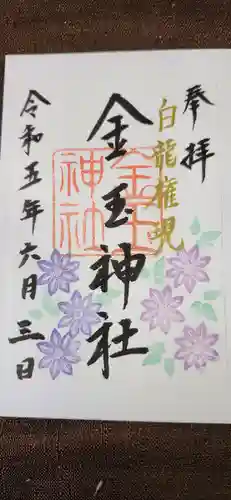 奉拝
白龍権現
金玉神社
金玉神社
令和五年六月三日